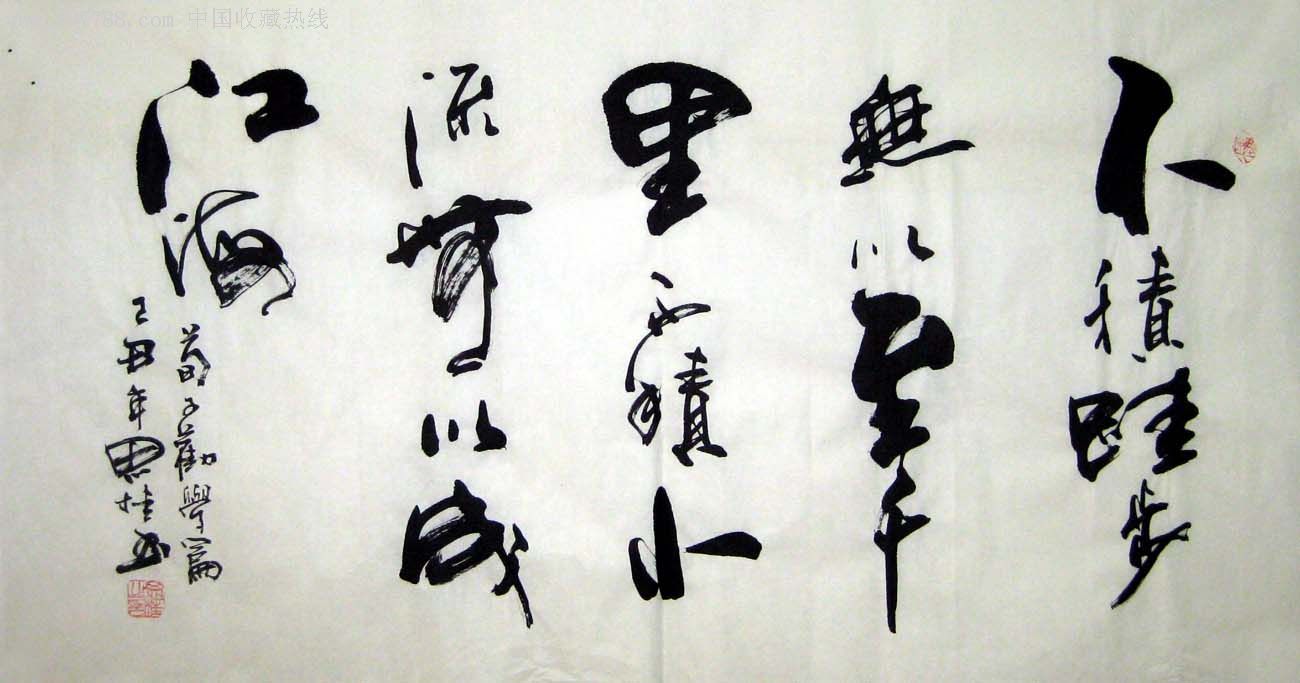 788.com 中国收藏热线
不積跬步
無以至千
里不積小
流無以成
江海
荀子勸學篇
己丑年桂书